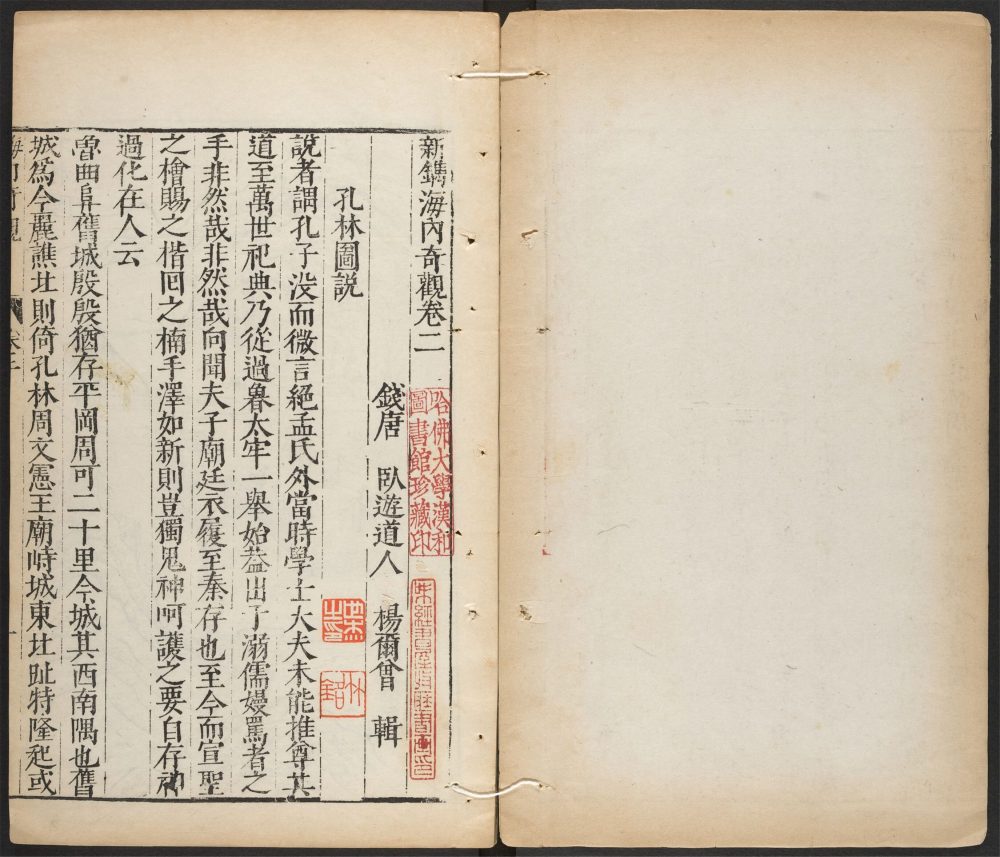 新鐫海內奇觀卷二
錢唐 臥遊道人 楊爾曾 輯
孔林圖説
説者謂孔子没而微言絕孟氏外當時學士大夫未能推尊其
道至萬世祀典乃從過魯太牢一舉始葢出于溺儒嫚罵者之
手非然哉非然哉向聞夫子廟廷衣履至秦存也至今而宣聖
之檜賜之楷回之楠手澤如新則豈獨鬼神呵護之要自存神
過化在人云
魯曲阜舊城殷殷猶存平岡周可二十里今城其西南隅也舊
城爲今麗譙北則倚孔林周文憲王廟峙城東北趾特隆起或
海內奇觀
卷二
一
哈佛大學漢和
圖書館珍藏印